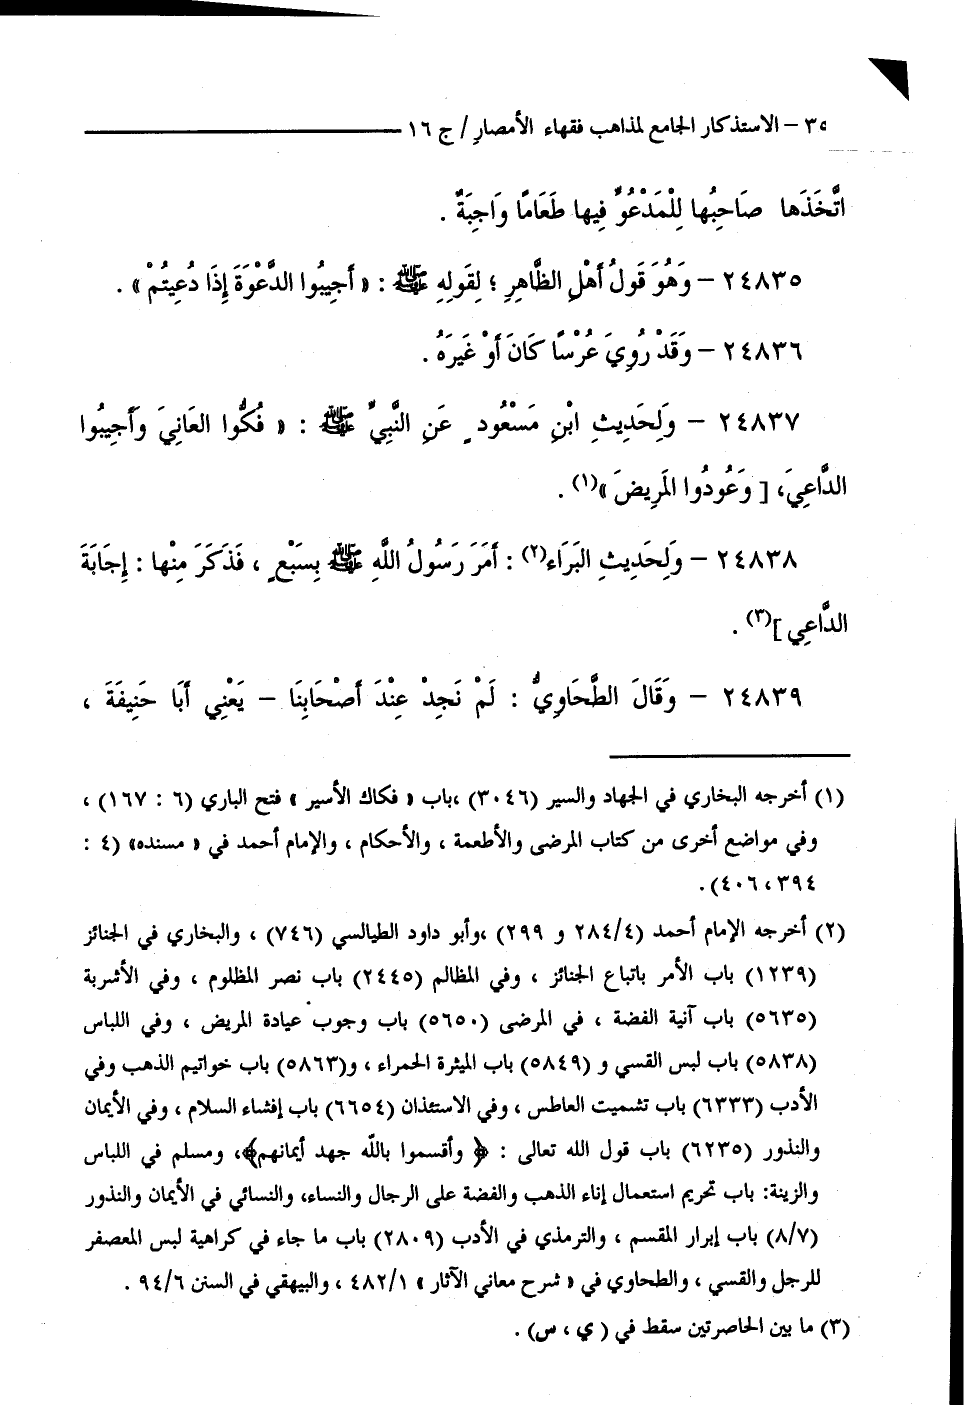 ٣٥ – الاستذكار الجامع لمذاهب فقهاء الأمصار / ج ١٦
اتَّخَذَها صَاحِبُها لِلْمَدْعُوِّ فِيها طَعَامًا وَاجِبَةٌ .
٢٤٨٣٥ – وَهُوَ قَولُ أَهْلِ الظَّاهِرِ ؛ لِقَولِهِ ﷺ : « أَجِيبُوا الدَّعْوَةَ إِذَا دُعِيتُمْ » .
٢٤٨٣٦ – وَقَدْ رُوِيَ عُرْسًا كَانَ أَوْ غَيرَهُ .
٢٤٨٣٧ – وَلِحَدِيثِ ابْنِ مَسْعُودٍ عَنِ النَّبِيِّ ﷺ : « فُكُّوا العَانِيَ وَأَجِيبُوا
الدَّاعِيَ، [ وَعُودُوا المَرِيضَ »(١) .
٢٤٨٣٨ – وَلِحَدِيثِ البَرَاءِ(٢) : أَمَرَ رَسُولُ اللَّهِ ﷺ بِسَبْعٍ ، فَذَكَرَ مِنْها : إِجَابَةَ
الدَّاعِي ](٣) .
٢٤٨٣٩ – وَقَالَ الطَّحَاوِيُّ : لَمْ نَجِدْ عِنْدَ أَصْحَابِنَا – يَعْنِي أَبَا حَنِيفَةَ ،
(١) أخرجه البخاري في الجهاد والسير (٣٠٤٦) ،باب « فكاك الأسير » فتح الباري (٦ : ١٦٧) ،
وفي مواضع أخرى من كتاب المرضى والأطعمة ، والأحكام ، والإمام أحمد في « مسنده» (٤ :
٣٩٤ ، ٤٠٦) .
(٢) أخرجه الإمام أحمد (٢٨٤/٤ و ٢٩٩) ،وأبو داود الطيالسي (٧٤٦) ، والبخاري في الجنائز
(١٢٣٩) باب الأمر باتباع الجنائز ، وفي المظالم (٢٤٤٥) باب نصر المظلوم ، وفي الأشربة
(٥٦٣٥) باب آنية الفضة ، في المرضى (٥٦٥٠) باب وجوب عيادة المريض ، وفي اللباس
(٥٨٣٨) باب لبس القسي و (٥٨٤٩) باب الميثرة الحمراء ، و(٥٨٦٣) باب خواتيم الذهب وفي
الأدب (٦٣٣٣) باب تشميت العاطس ، وفي الاستئذان (٦٦٥٤) باب إفشاء السلام ، وفي الأيمان
والنذور (٦٢٣٥) باب قول الله تعالى : ﴿ وأقسموا باللّه جهد أيمانهم﴾، ومسلم في اللباس
والزينة: باب تحريم استعمال إناء الذهب والفضة على الرجال والنساء، والنسائي في الأيمان والنذور
(٨/٧) باب إبرار المقسم ، والترمذي في الأدب (٢٨٠٩) باب ما جاء في كراهية لبس المعصفر
للرجل والقسي ، والطحاوي في « شرح معاني الآثار » ٤٨٢/١ ، والبيهقي في السنن ٩٤/٦ .
(٣) ما بين الحاصرتين سقط في ( ي ، س) .